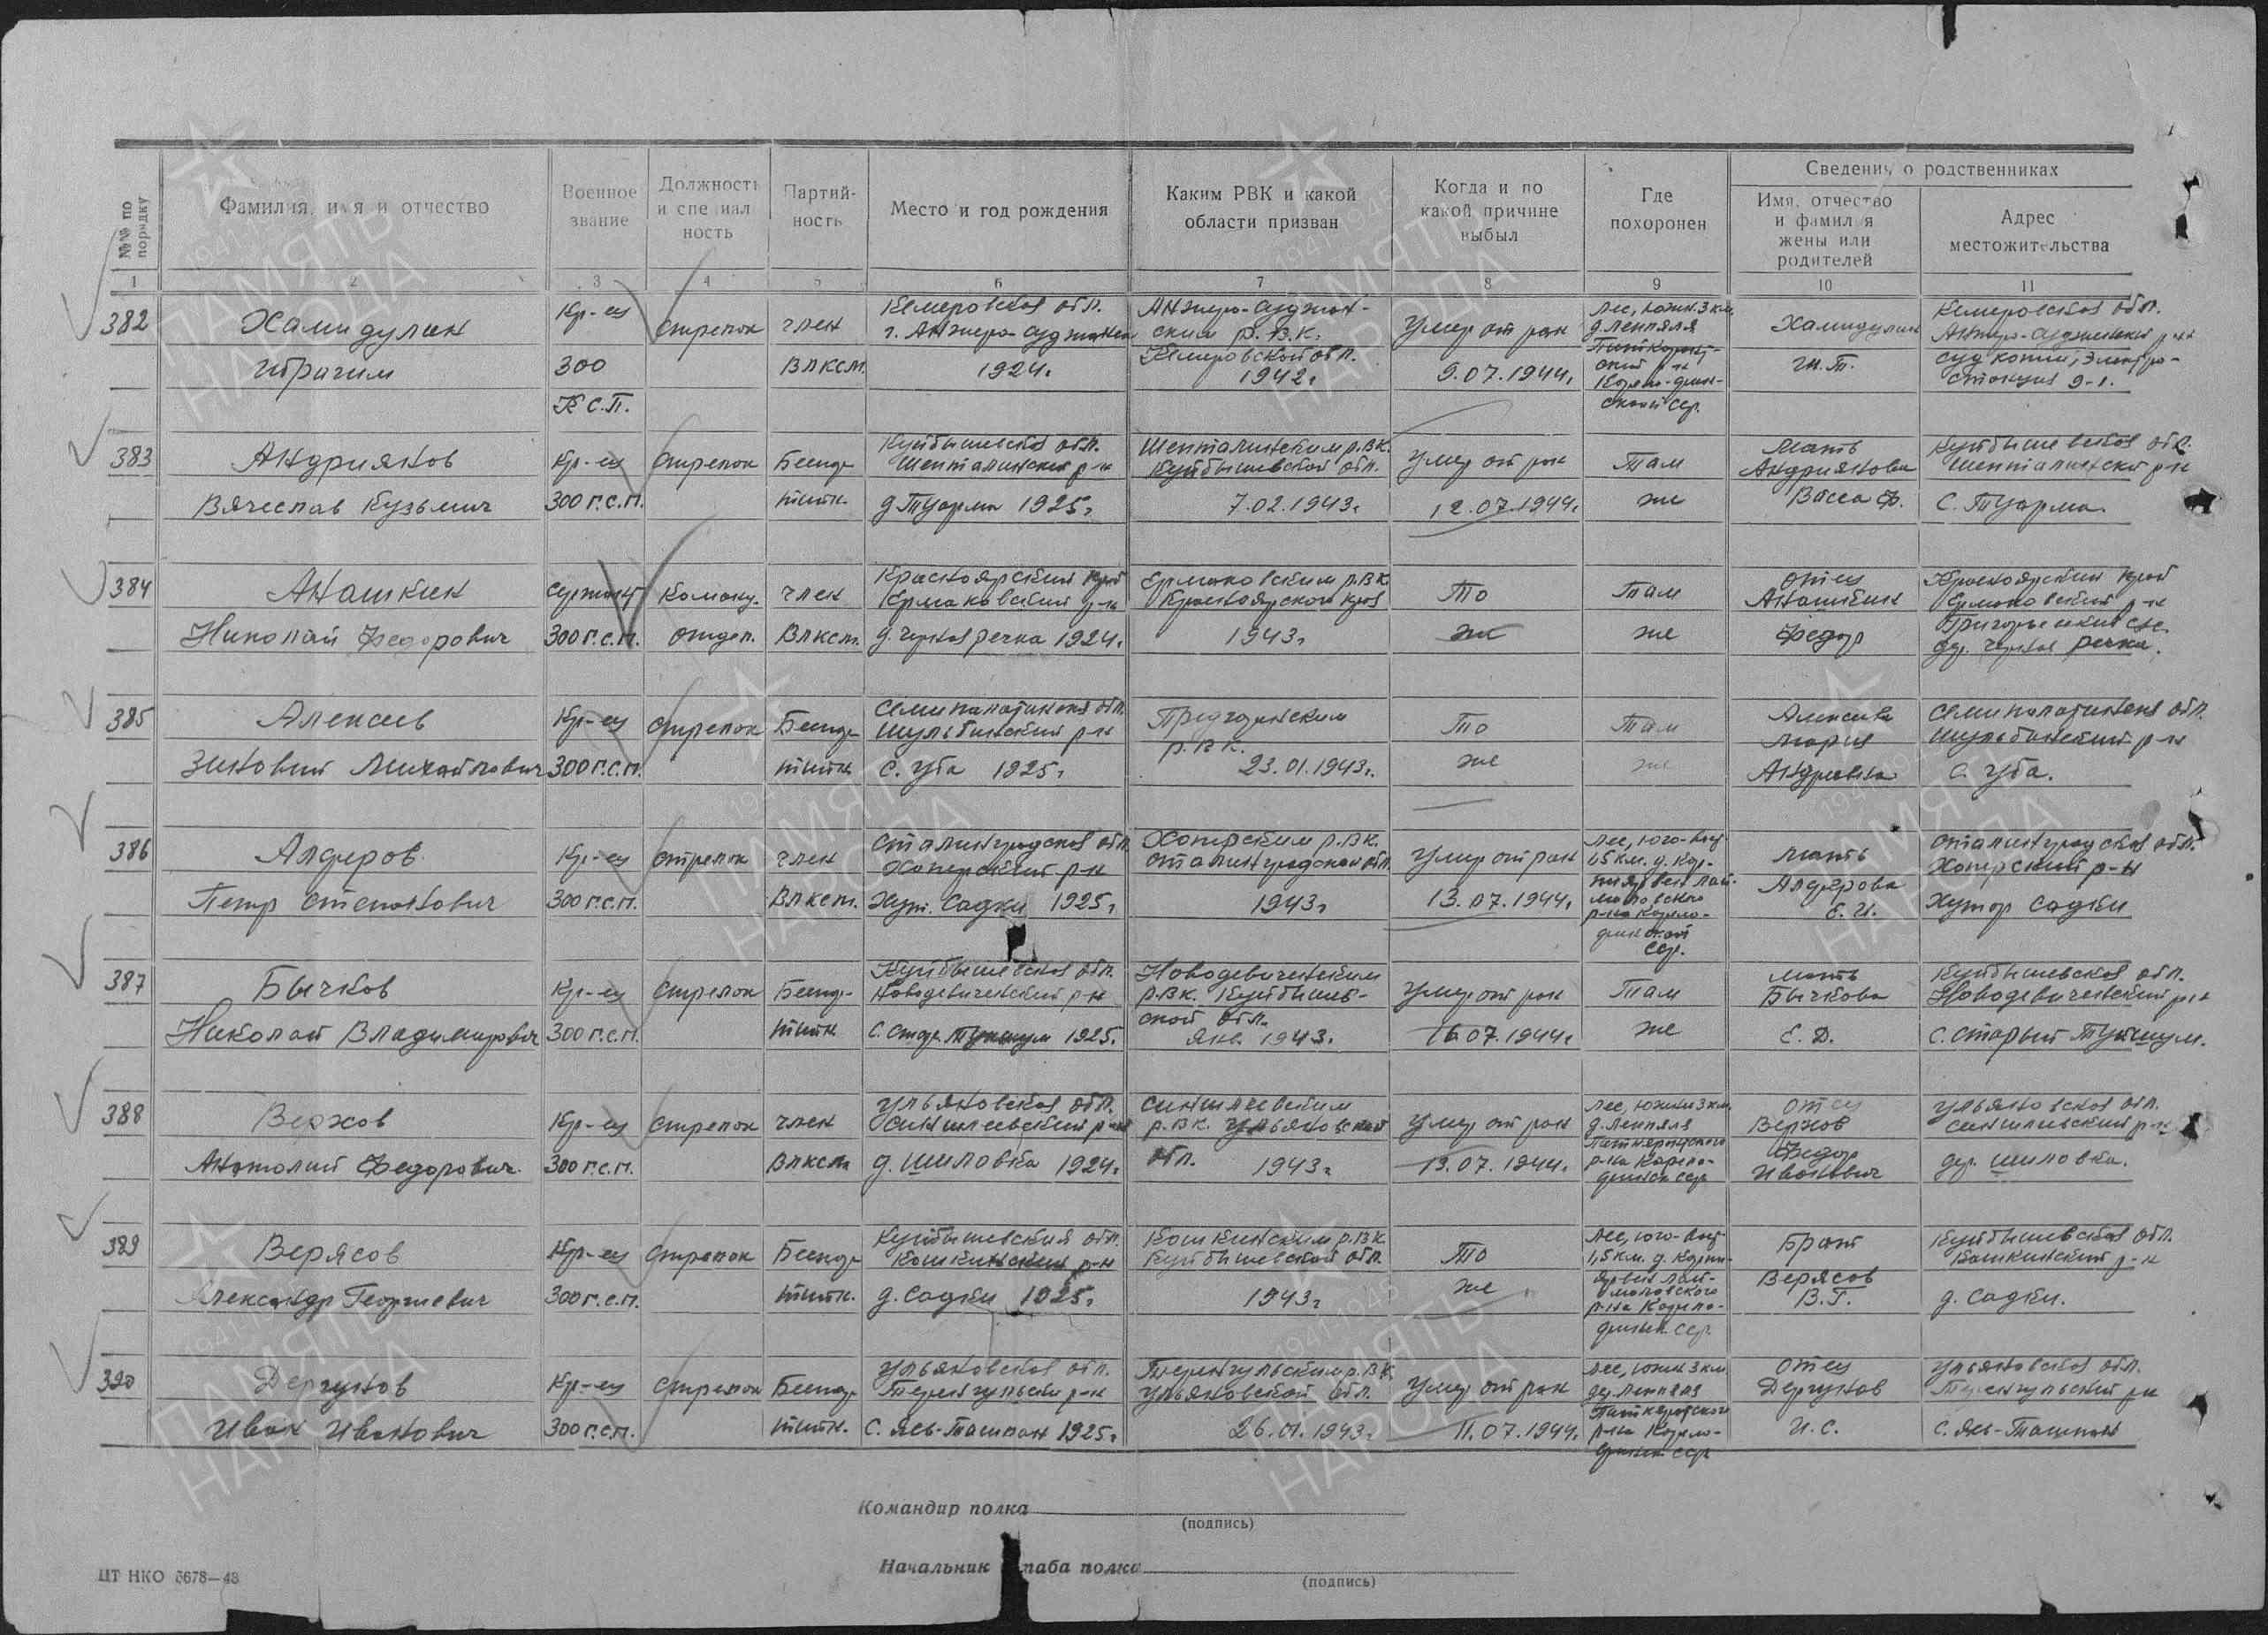 №№ по порядку
Фамилия, имя и отчество
Военное звание
Должность и специальность
Партийность
Место и год рождения
Каким РВК и какой области призван
Когда и по какой причине выбыл
Где похоронен
Сведения о родственниках
Имя, отчество и фамилия жены или родителей
Адрес местожительства
1 2 3 4 5 6 7 8 9 10 11
382
Хамидулин
Ибрагим
Кр-ец
300
К С.П.
стрелок
член
ВЛКСМ.
Кемеровская обл.
г. Анжеро-Суджинск
1924г.
Анжеро-Суджен-
ским Р.В.К.
Кемеровской обл.
1942г.
Умер от ран
9.07.1944г.
Лес, южн. 3 км.
д. Лепяля
ский р-н
Карело-фин-
ской сср.
Хамидулин
И.Т.
Кемеровская обл.
Анжеро-Судженский р-н
9-1.
383
Андриянов
Вячеслав Кузьмич
Кр-ец
300 г.с.п.
стрелок
Беспар-
тийн.
Куйбышевская обл.
Шенталинский р-н
д. Туарма 1925г.
Шенталинским р.в.к.
Куйбышевской обл.
7.02.1943г.
Умер от ран
12.07.1944г.
Там
же
Мать
Андриянова
Васса Ф.
Куйбышевская обл.
Шенталинский р-н
с. Туарма.
384
Анашкин
Николай Федорович
Сержант
300 г.с.п.
Команд.
отдел.
член
ВЛКСМ.
Красноярский край
Ермаковский р-н
д. Черная речка 1924г.
Ермаковским р.в.к.
Красноярского края
1943г.
То
же
Там
же
Отец
Анашкин
Федор
Красноярский край
Ермаковский р-н
дер. Черная речка.
385
Алексеев
Зиновий Михайлович
Кр-ец
300 г.с.п.
стрелок
Беспар-
тийн
Семипалатинская обл.
Шульбинский р-н
с. Уба 1925г.
р.в.к.
23.01.1943г.
То
же
Там
же
Алексеева
Мария
Андреевна
Семипалатинская обл.
Шульбинский р-н
с. Уба.
386
Алферов
Петр Степанович
Кр-ец
300 г.с.п.
стрелок
член
ВЛКСМ.
Сталинградская обл.
Хоперский р-н
Хут. Садки 1925г.
Хоперским р.в.к.
Сталинградской обл.
1943г.
Умер от ран
13.07.1944г.
Лес, юго-вост.
1,5 км. д. Кар-
р-на Карело-
финской
сср.
Мать
Алферова
Е. И.
Сталинградская обл.
Хоперский р-н
Хутор Садки
387
Бычков
Николай Владимирович
Кр-ец
300 г.с.п.
стрелок
Беспар-
тийн
Куйбышевская обл.
Новодевиченский р-н
с. Стар. Тукшум 1925г.
Новодевиченским
р.в.к. Куйбышев-
ской обл.
Янв. 1943г.
Умер от ран
16.07.1944г.
Там
же
Мать
Бычкова
Е. Д.
Куйбышевская обл.
Новодевиченский р-н
с. Старый Тукшум.
388
Верхов
Анатолий Федорович
Кр-ец
300 г.с.п.
стрелок
член
ВЛКСМ
Ульяновская обл.
Сингилеевский р-н
д. Шиловка 1924г.
Сингилеевским
р.в.к. Ульяновской
обл. 1943г.
Умер от ран
13.07.1944г.
Лес, южн 3 км.
д. Лепяля
Питкярндского
р-на Карело-
финск сср
Отец
Верхов
Федор
Иванович
Ульяновская обл.
Сингилевский р-н
дер. Шиловка.
389
Верясов
Александр Георгиевич
Кр-ец
300 г.с.п.
стрелок
Беспар-
тийн.
Куйбышевская обл.
Кошкинский р-н
д. Садки 1925г.
Кошкинским р.в.к
Куйбышевской обл.
1943г.
То
же
Лес, юго-вост
1,5 км. д. Карки-
р-на Карело-
финск. сср.
Брат
Верясов
В. Г.
Куйбышевская обл.
Кошкинский р-н
д. Садки.
390
Дергунов
Иван Иванович
Кр-ец
300 г.с.п.
стрелок
Беспар-
тийн.
Ульяновская обл.
Теренгульский р-н
с. Яс-Ташлак 1925г.
Теренгульским р.в.к
Ульяновской обл.
26.01.1943г.
Умер от ран
11.07.1944г.
Лес, южн 3 км
дер. Лепяля
Питкярндского
р-на Карело-
финск сср
Отец
Дергунов
И. С.
Ульяновская обл.
Теренгульский р-н
Командир полка
(подпись)
Начальник штаба полка
(подпись)
ЦТ НКО 5678—43
1941 1945
ПАМЯТЬ
НАРОДА